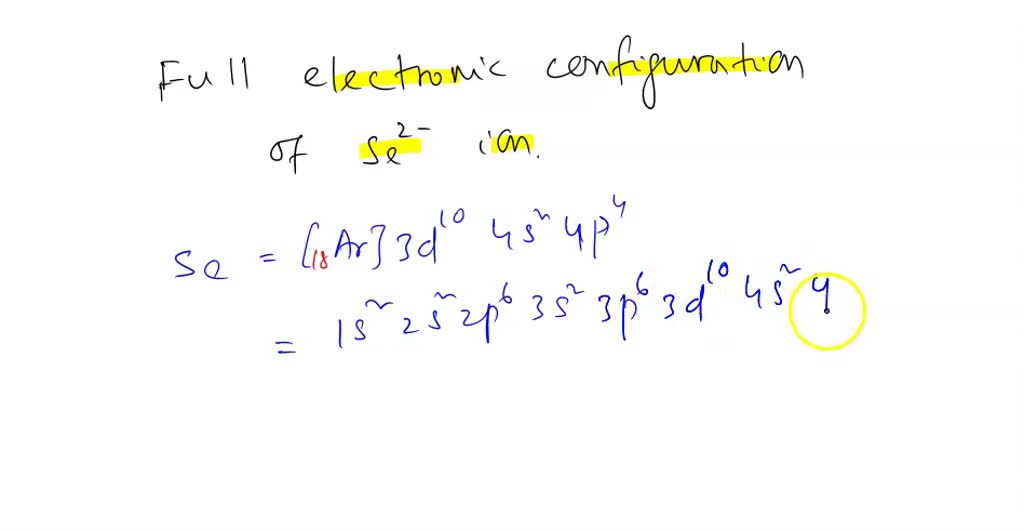 Full electronic configuration
of Se²⁻ ion.
Se = [₁₈Ar] 3d¹⁰ 4s² 4p⁴
= 1s² 2s² 2p⁶ 3s² 3p⁶ 3d¹⁰ 4s² 4